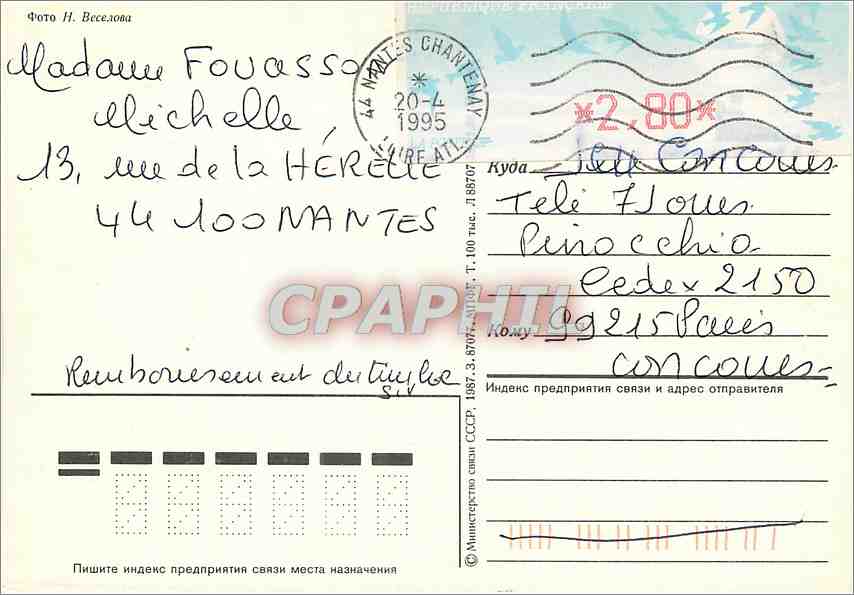 Фото Н. Веселова
RÉPUBLIQUE FRANÇAISE
44 NANTES CHANTENAY
*
20-4
1995
LOIRE ATL.
*2,80*
Madame FOUASSON
Michelle,
13, rue de la HÉRELLE
44 100 NANTES
Remboursement du timbre
S.V
Куда Jeu Concours
Télé 7 Jours
Pinocchio
Cedex 2150
Кому 99215 Paris
concours
Индекс предприятия связи и адрес отправителя
© Министерство связи СССР, 1987. З. 87077. МПФГ. Т. 100 тыс. Л 88707
CPAPHIL
Пишите индекс предприятия связи места назначения